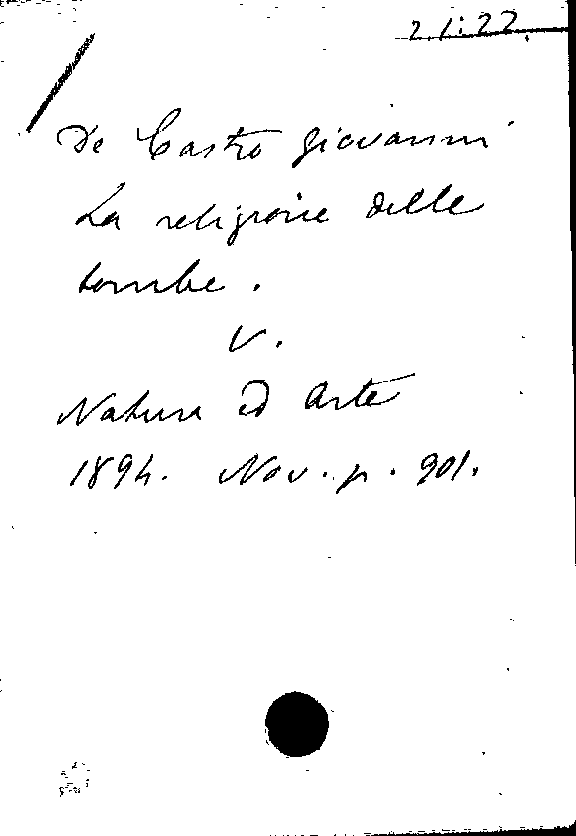 2.1:22.
De Castro Giovanni
La religione delle
tombe.
V.
Natura ed Arte
1894. Nov. p. 901.